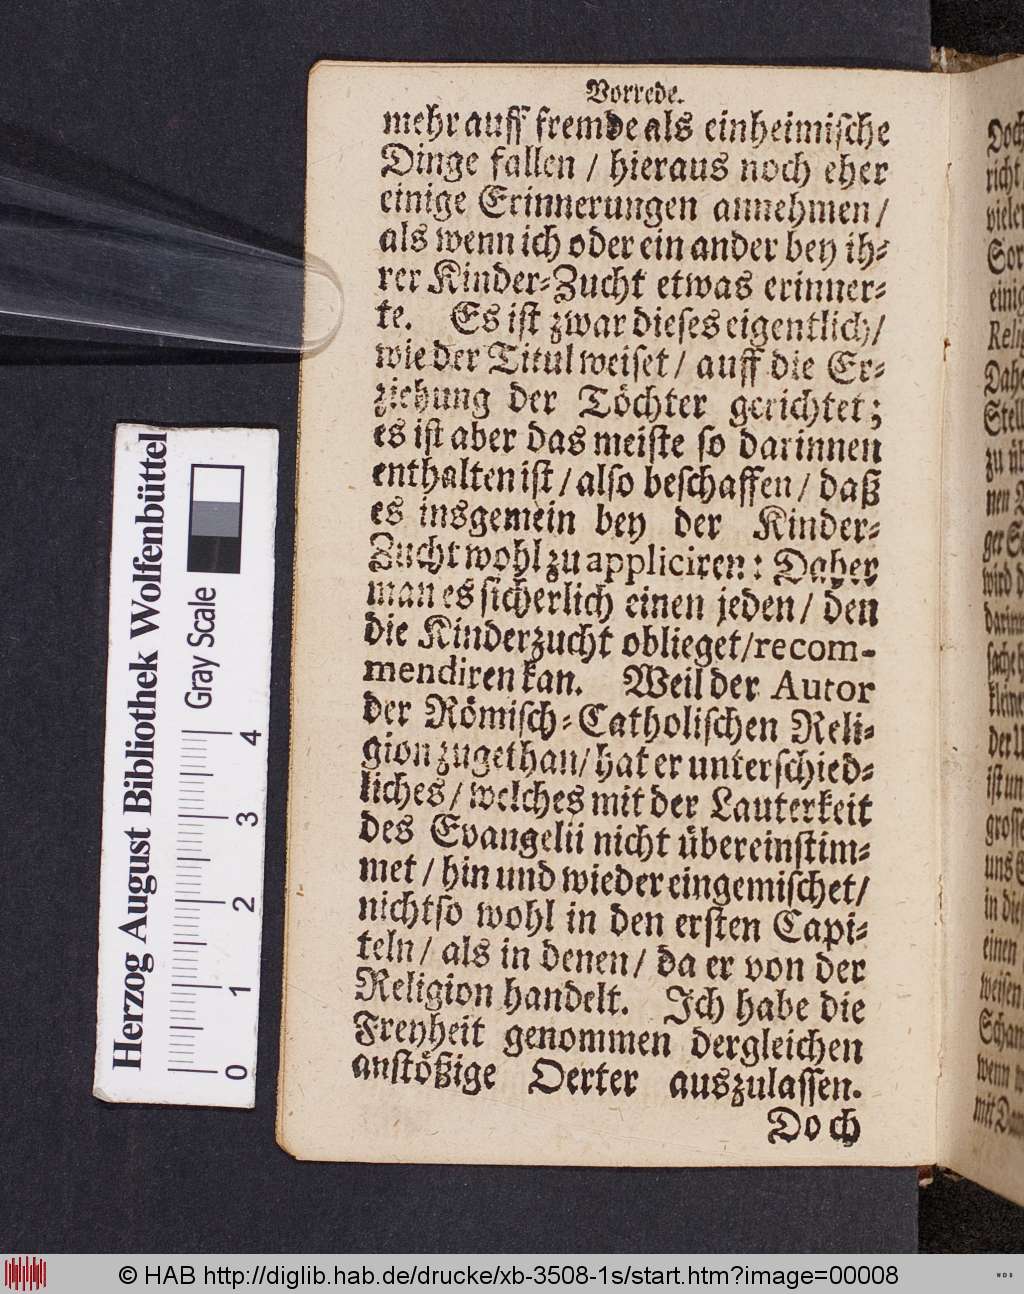 Vorrede.
mehr auff fremde als einheimische
Dinge fallen / hieraus noch eher
einige Erinnerungen annehmen /
als wenn ich oder ein ander bey ih-
rer Kinder-Zucht etwas erinner-
te. Es ist zwar dieses eigentlich /
wie der Titul weiset / auff die Er-
ziehung der Töchter gerichtet;
es ist aber das meiste so darinnen
enthalten ist / also beschaffen / daß
es insgemein bey der Kinder-
Zucht wohl zu appliciren: Daher
man es sicherlich einen jeden / den
die Kinderzucht oblieget / recom-
mendiren kan. Weil der Autor
der Römisch-Catholischen Reli-
gion zugethan / hat er unterschied-
liches / welches mit der Lauterkeit
des Evangelii nicht übereinstim-
met / hin und wieder eingemischet /
nicht so wohl in den ersten Capi-
teln / als in denen / da er von der
Religion handelt. Ich habe die
Freyheit genommen dergleichen
anstößige Oerter auszulassen.
Doch
Herzog August Bibliothek Wolfenbüttel
Gray Scale
0 1 2 3 4
Doch
richt
© HAB http://diglib.hab.de/drucke/xb-3508-1s/start.htm?image=00008